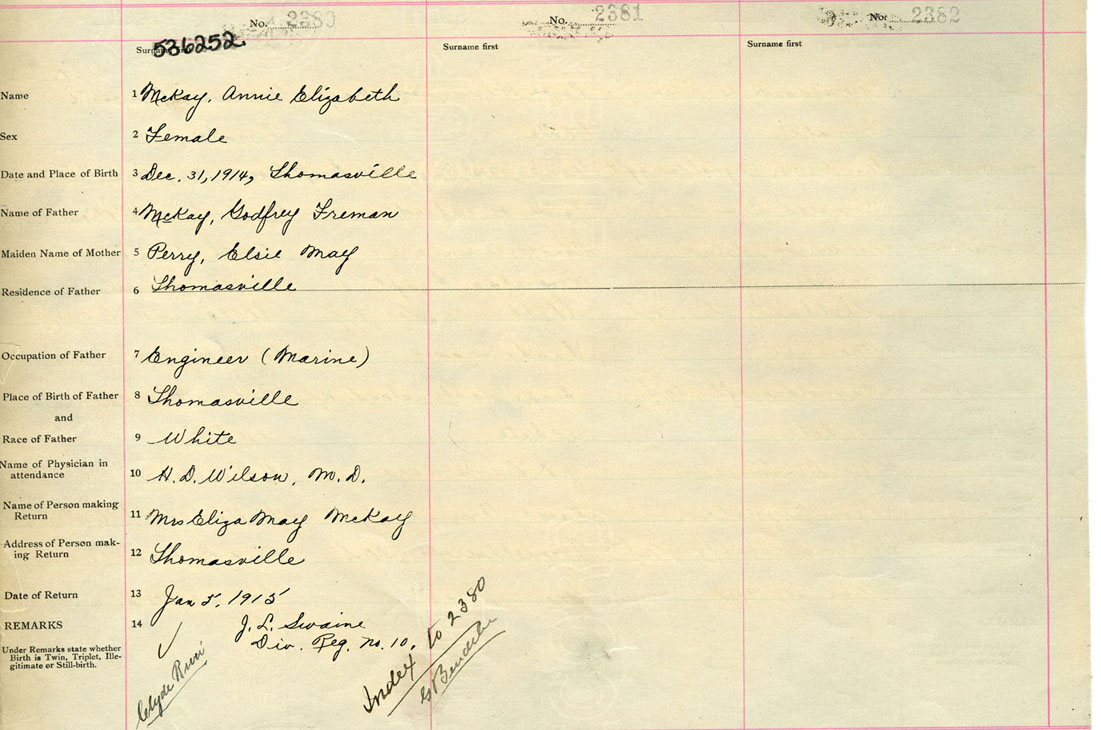 No. 2380
No. 2381
No. 2382
536252
Surname first
Surname first
Name 1 McKay, Annie Elizabeth
Sex 2 Female
Date and Place of Birth 3 Dec. 31, 1914, Thomasville
Name of Father 4 McKay, Godfrey Freman
Maiden Name of Mother 5 Perry, Elsie May
Residence of Father 6 Thomasville
Occupation of Father 7 Engineer (Marine)
Place of Birth of Father 8 Thomasville
and
Race of Father 9 White
Name of Physician in
attendance 10 H. D. Wilson, M. D.
Name of Person making
Return 11 Mrs Eliza May McKay
Address of Person mak-
ing Return 12 Thomasville
Date of Return 13 Jan 5, 1915
REMARKS 14 J. L. Swaine
Div. Reg. No. 10.
Under Remarks state whether
Birth is Twin, Triplet, Ille-
gitimate or Still-birth.
Clyde
Index to 2380